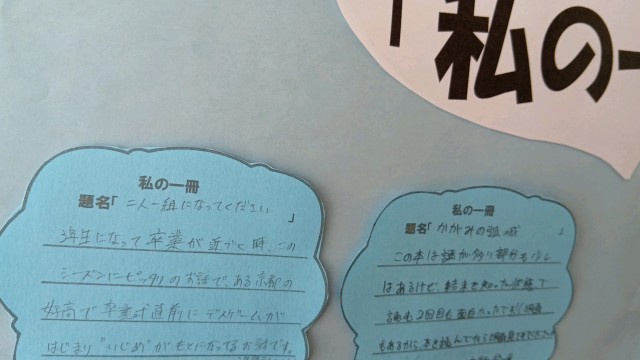 「私の一
私の一冊
題名「二人一組になってください」
3年生になって卒業が近づく時、この
シーズンにピッタリのお話で、ある京都の
女子高で卒業式直前にデスゲームが
はじまり"いじめ"がもとになってるお話です。
私の一冊
題名「かがみの孤城」
この本は謎が多い部分も少し
はあるけど、結末を知った状態で
読む2回目も面白かったです!!映画
もあるから、本を読んでから映画見